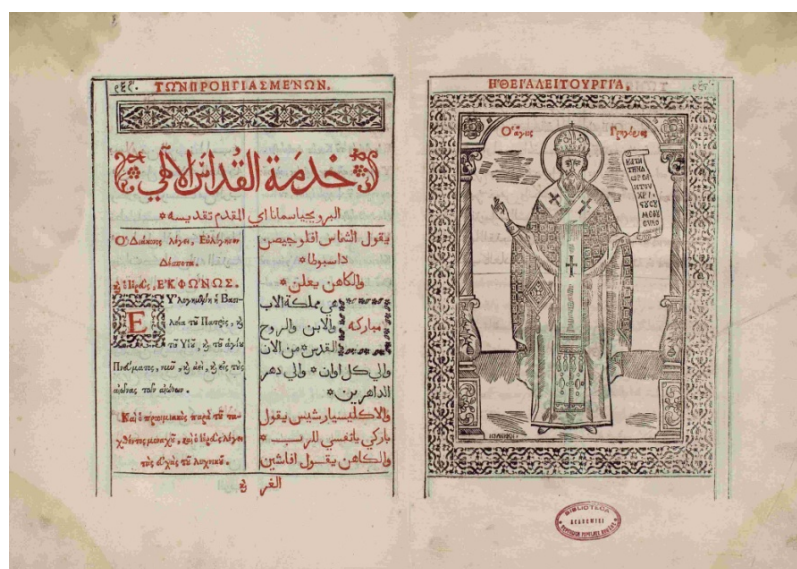 ΤΩΝ ΠΡΟΗΓΙΑΣΜΕ'ΝΩΝ.
خدمة القداس الالهي
البروجيياسمانا اي المقدم تقديسه *
Ὁ Διάκονος λέγει, Εὐλόγησον
Δέσποτα.
ὁ Ἱερεὺς, Ἐ'ΚΦΩ'ΝΩΣ.
Εὐλογημένη ἡ Βασι-
λεία τοῦ Πατρὸς, καὶ
τοῦ Υἱοῦ, καὶ τοῦ ἁγίου
Πνεύματος, νῦν, καὶ ἀεὶ, καὶ εἰς τοὺς
αἰῶνας τῶν αἰώνων.
Καὶ ὁ προοιμιακὸς παρὰ τοῦ τα-
χθέντος μοναχοῦ, καὶ ὁ Ἱερεὺς λέγει
τὰς εὐχὰς τοῦ λυχνικοῦ.
καὶ
يقول الشماس افلوجيصن
داسبوطا *
والكاهن يعلن *
مباركه هي مملكة الاب
والابن والروح
القدس * من الان
والي كل اوان * والي دهر
الداهرين *
والاكليسيارشيس يقول
باركي يانفسي للرب *
والكاهن يقول افاشين
الغر
Ἡ ΘΕΙ'Α ΛΕΙΤΟΥΡΓΙ'Α,
Ὁ ἅγιος Γρηγόριος
BIBLIOTECA
ACADEMIEI